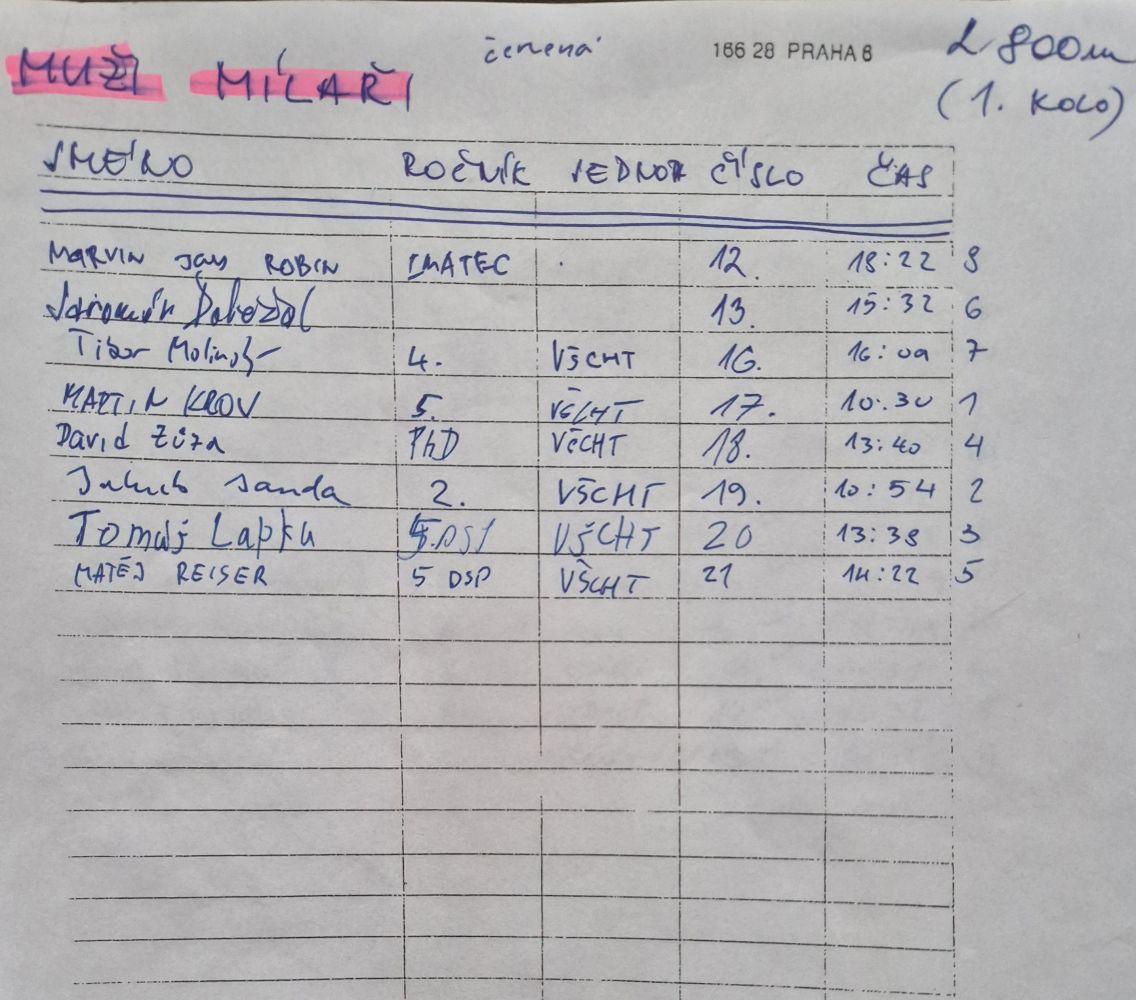 MUŽI MÍLAŘI červená 166 28 PRAHA 6 2 800m
(1. KOLO)
JMÉNO ROČNÍK JEDNOR ČÍSLO ČAS
MARVIN JAN ROBIN IMATEC 12. 18:22 8
Jaromír Doležal 13. 15:32 6
Tibor 4. VŠCHT 16. 16:09 7
MARTIN KROV 5. VŠCHT 17. 10:30 1
David Zůza PhD VŠCHT 18. 13:40 4
Jakub Janda 2. VŠCHT 19. 10:54 2
Tomáš Lapka VŠCHT 20 13:38 3
MATĚJ REISER 5 DSP VŠCHT 21 14:22 5